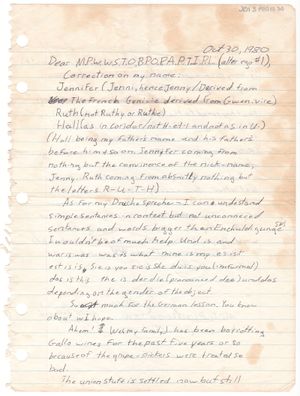 Oct 30, 1980
Dear M.P.W.W.S.T.O.B.P.O.P.A.P.T.I.P.L. (alter ego #1),
Correction on my name:
Jennifer (Jenni, hence Jenny/Derived from
The French Geni derived from Gwen
Ruth (not Ruthy or Ruthe)
Hall (as in
(Hall being my fathers name and his fathers
before him & so on. Jennifer coming from
nothing but the convinence of the nick-name,
Jenny. Ruth coming from absuitly nothing but
the letters R-U-T-H)
As for my Druche sprecher - I can undestand
simple sentances in context but not unconnected
sentances and words bigger than Enchuldigunge
I wouldn't be of much help. Und is and
war is was was is what mine is my es ist
est is is Sie is you sie is she du is you (informal)
das is this the is der die (pronounced dee) und das
depending on the gender of the object.
So much for the German lesson. You know
about wi hope
Ahem! I (and my family) has been boycotting
Gallo wines for the past five years or so
because of the grape-pickers were treated so
bad.
The union stuff is settled now but still